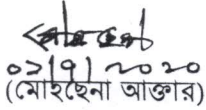 ০২|৭|২০২০
(মোহছেনা আক্তার)